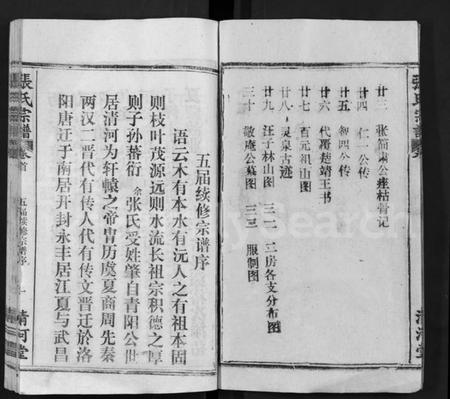 廿三 张简肃公瘗枯骨记
廿四 仁一公传
廿五 智四公传
廿六 代蜀楚靖王书
廿七 百元祖山图
廿八 灵泉古迹
廿九 汪子林山图
三十 敬庵公墓图
三二 二房各支分布图
三三 服制图
清河堂
五届续修宗谱序
语云木有本水有沅人之有祖本固
则枝叶茂源远则水流长祖宗积德之厚
则子孙蕃衍余张氏受姓肇自青阳公世
居清河为轩辕之帝胄历虞夏商周先秦
两汉二晋代有传人代有传文晋迁於洛
阳唐迁于南居开封永丰居江夏与武昌
張氏宗譜 卷首 五届续修宗谱序 一 清河堂